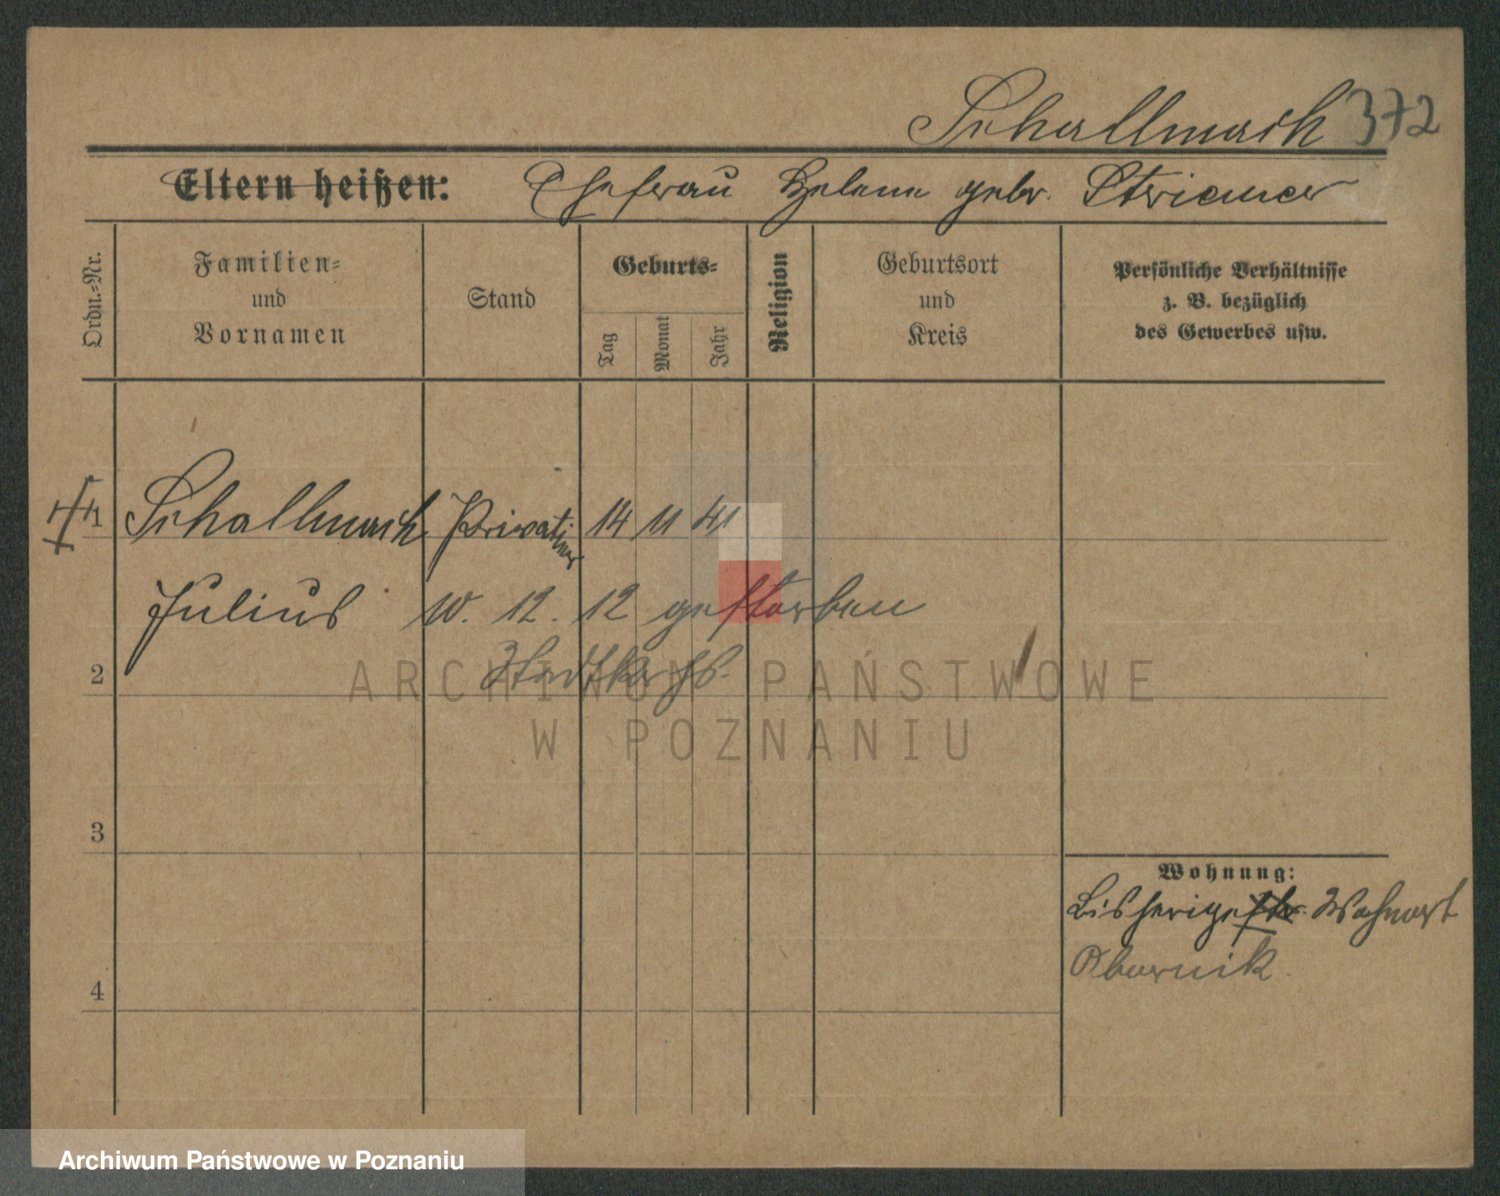 Schallmach 372
Eltern heißen: Ehefrau Helene gebr. Striemer
Ordn.-Nr.
Familien-
und
Vornamen
Stand
Geburts-
Tag
Monat
Jahr
Religion
Geburtsort
und
Kreis
Persönliche Verhältnisse
z. B. bezüglich
des Gewerbes usw.
1 Schallmach Privatier 14 11 41
Julius 10. 12. 12 gestorben
2
ARCHIWUM PAŃSTWOWE
W POZNANIU
3
Wohnung:
Bisherige Wohnort
Obornik
4
Archiwum Państwowe w Poznaniu